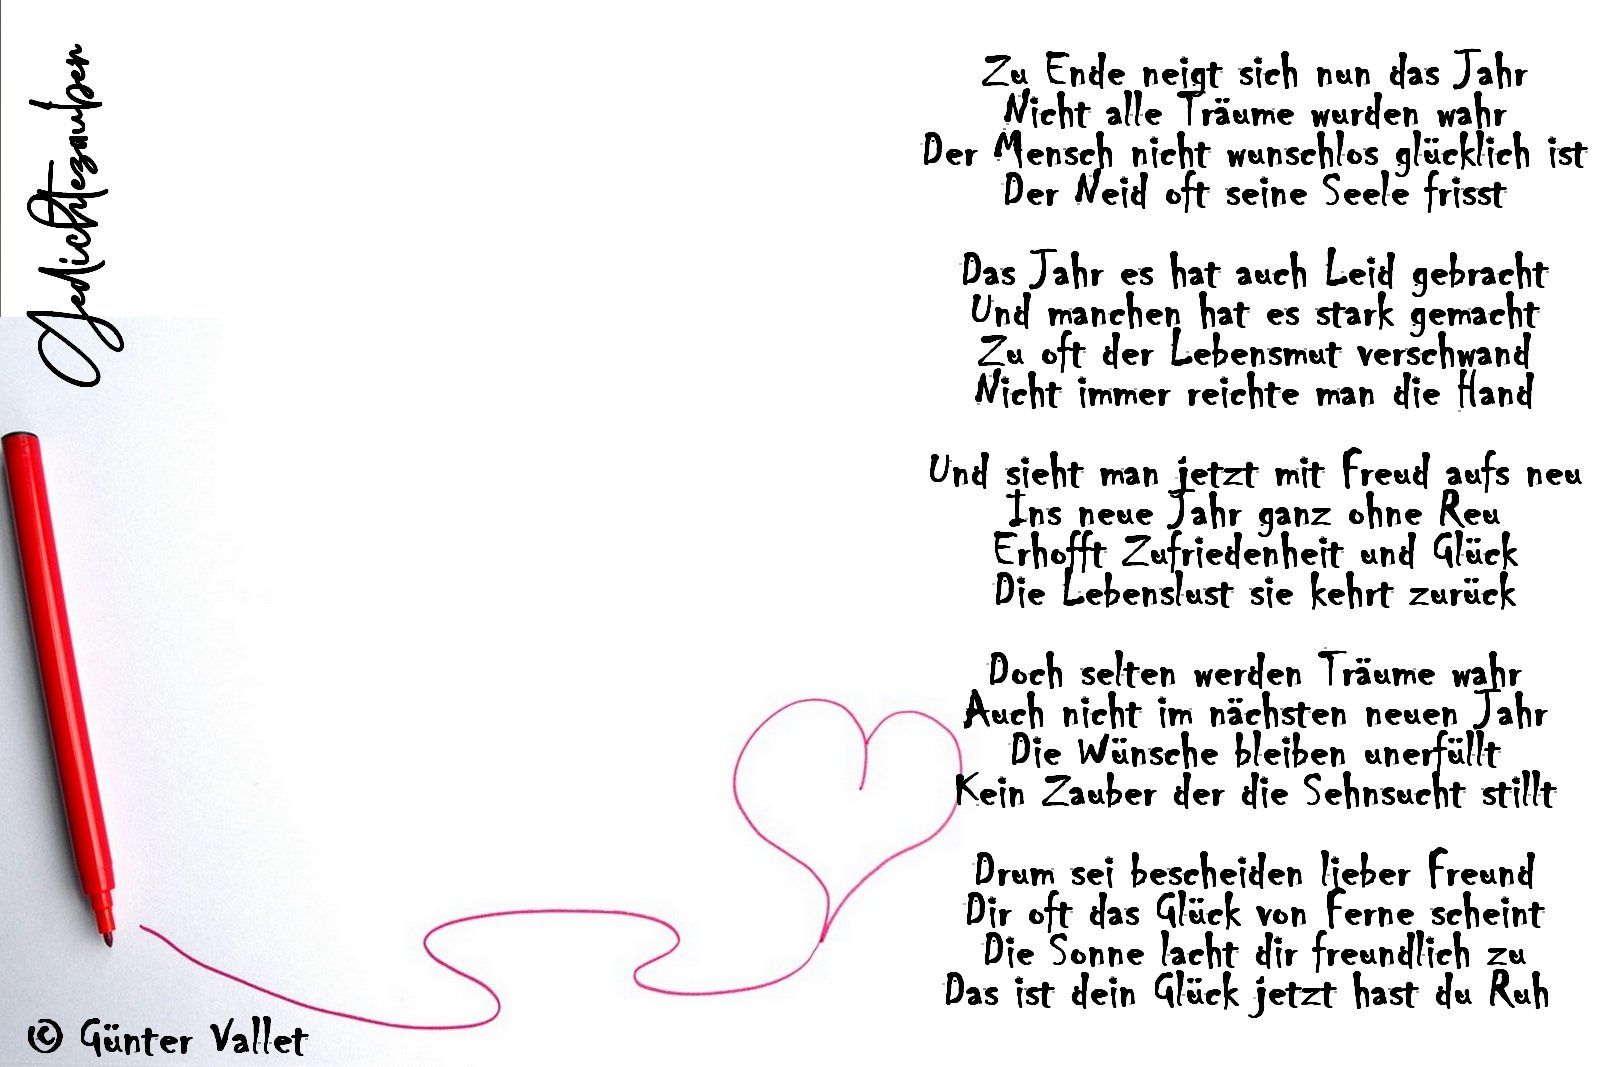 Gedichtezauber
Zu Ende neigt sich nun das Jahr
Nicht alle Träume wurden wahr
Der Mensch nicht wunschlos glücklich ist
Der Neid oft seine Seele frisst
Das Jahr es hat auch Leid gebracht
Und manchen hat es stark gemacht
Zu oft der Lebensmut verschwand
Nicht immer reichte man die Hand
Und sieht man jetzt mit Freud aufs neu
Ins neue Jahr ganz ohne Reu
Erhofft Zufriedenheit und Glück
Die Lebenslust sie kehrt zurück
Doch selten werden Träume wahr
Auch nicht im nächsten neuen Jahr
Die Wünsche bleiben unerfüllt
Kein Zauber der die Sehnsucht stillt
Drum sei bescheiden lieber Freund
Dir oft das Glück von Ferne scheint
Die Sonne lacht dir freundlich zu
Das ist dein Glück jetzt hast du Ruh
© Günter Vallet